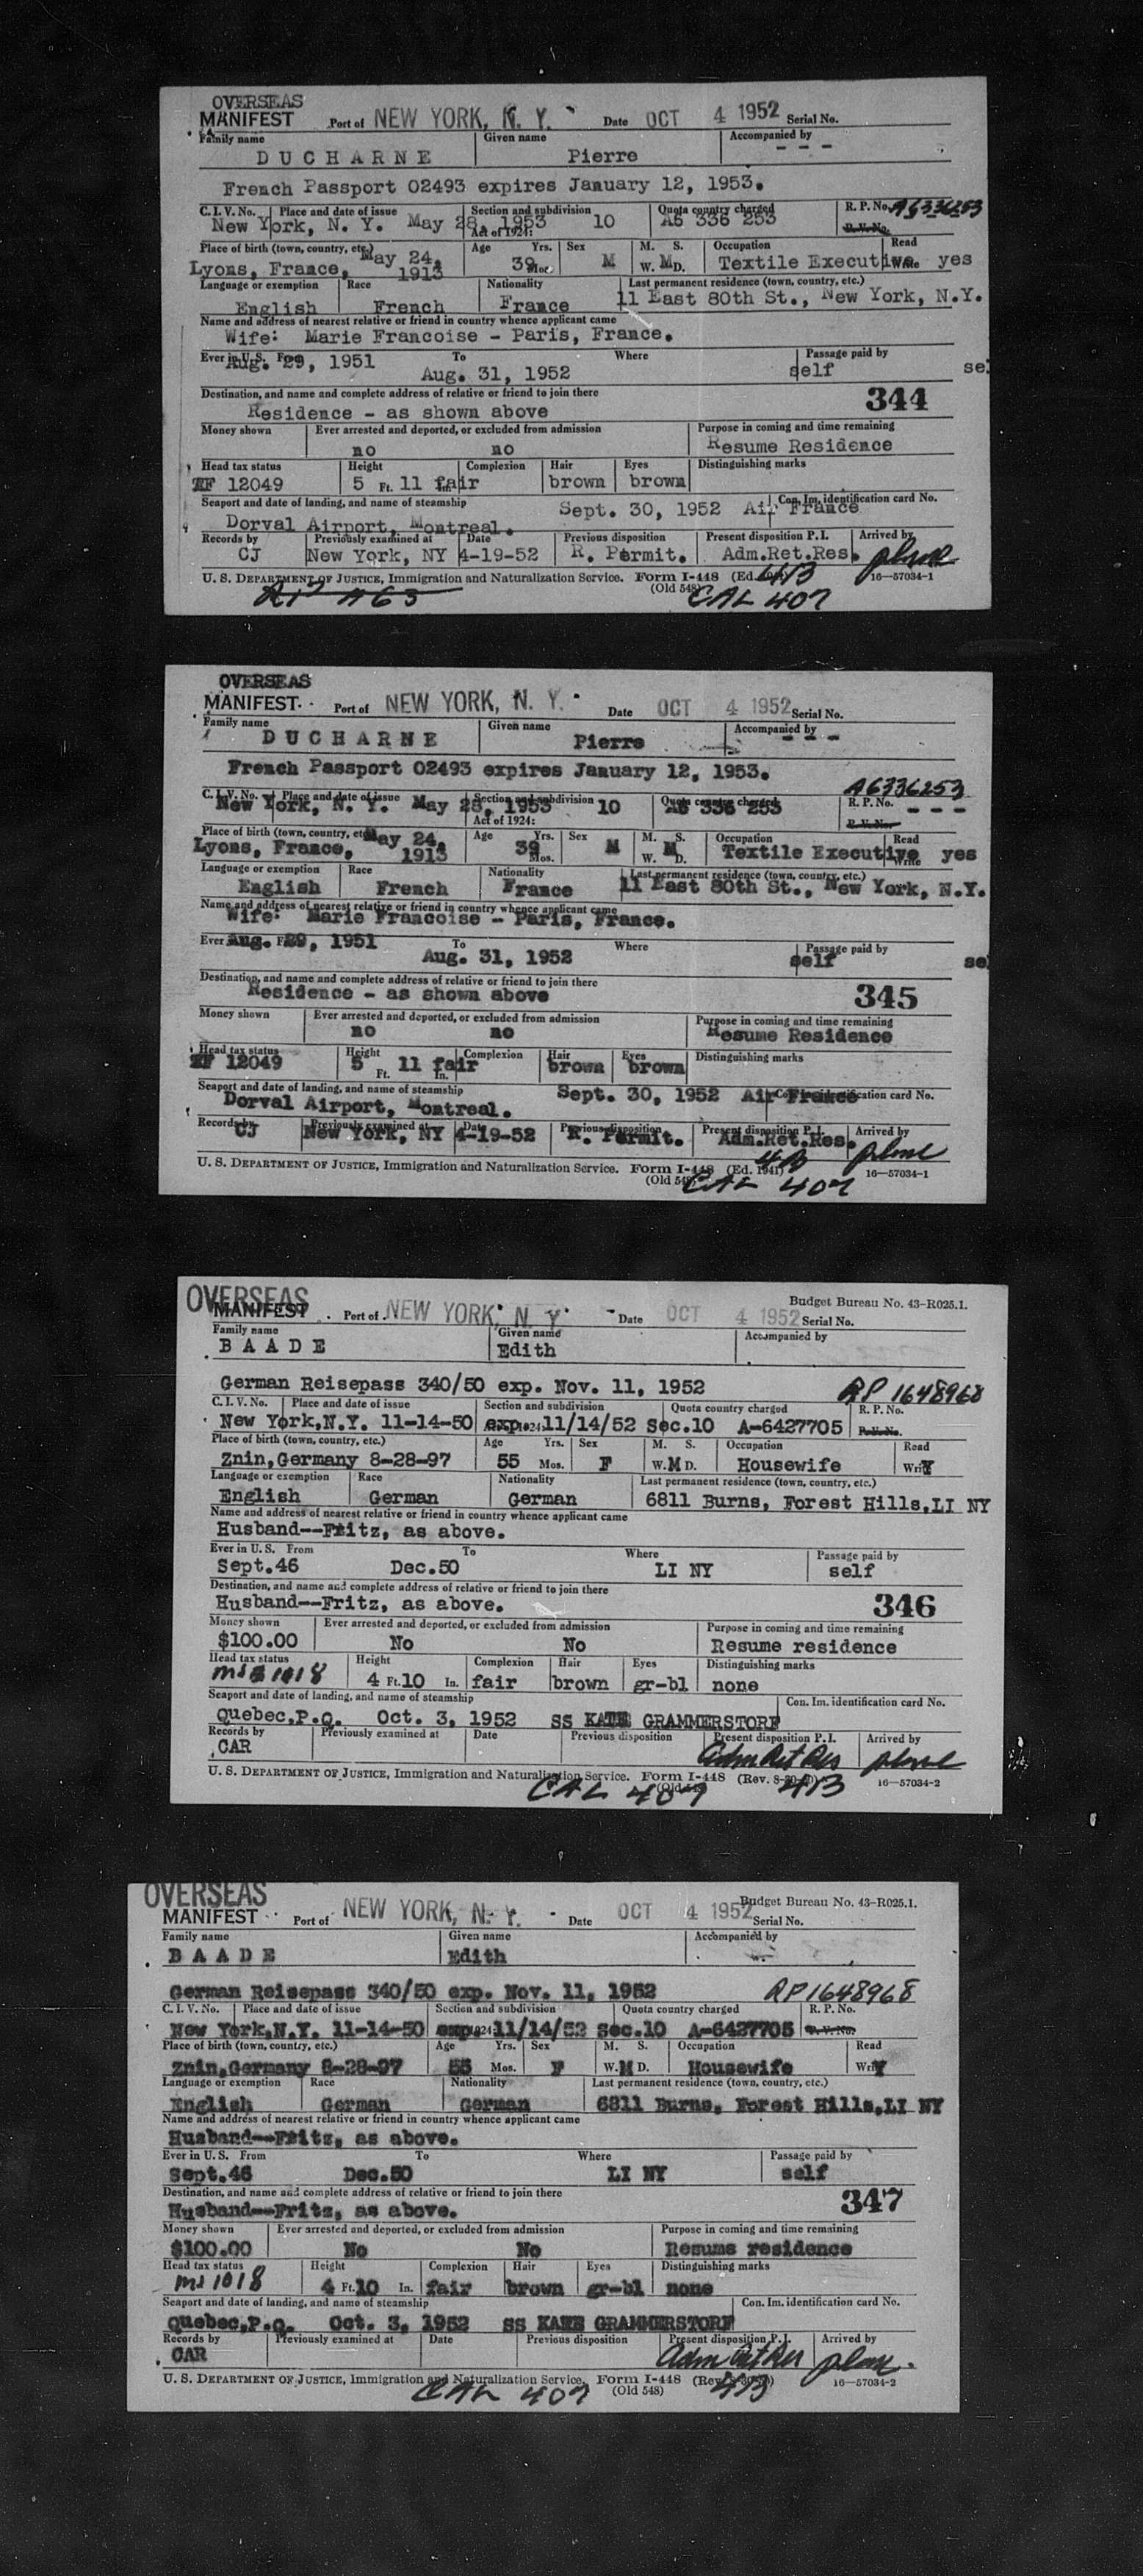 OVERSEAS
MANIFEST Port of NEW YORK, N. Y. Date OCT 4 1952 Serial No.
Family name Given name Accompanied by
D U C H A R N E Pierre - - -
French Passport 02493 expires January 12, 1953.
C. I. V. No. Place and date of issue Section and subdivision Quota country charged R. P. No. A6336253
New York, N. Y. May 28, 1953 10 A6 336 253
Act of 1924:
Place of birth (town, country, etc.) Age Yrs. Sex M. S. Occupation Read
Lyons, France, May 24, 1913 39 Mos. M W. M D. Textile Executive Write yes
Language or exemption Race Nationality Last permanent residence (town, country, etc.)
English French France 11 East 80th St., New York, N.Y.
Name and address of nearest relative or friend in country whence applicant came
Wife: Marie Francoise - Paris, France.
Ever in U.S. From To Where Passage paid by
Aug. 29, 1951 Aug. 31, 1952 self se
Destination, and name and complete address of relative or friend to join there 344
Residence - as shown above
Money shown Ever arrested and deported, or excluded from admission Purpose in coming and time remaining
no no Resume Residence
Head tax status Height Complexion Hair Eyes Distinguishing marks
RF 12049 5 Ft. 11 In. fair brown brown
Seaport and date of landing, and name of steamship Con. Im. identification card No.
Dorval Airport, Montreal. Sept. 30, 1952 Air France
Records by Previously examined at Date Previous disposition Present disposition P.I. Arrived by
CJ New York, NY 4-19-52 R. Permit. Adm.Ret.Res. plane
U. S. DEPARTMENT OF JUSTICE, Immigration and Naturalization Service. Form I-448 (Ed. 413 16—57034-1
(Old 548) CAL 407
OVERSEAS
MANIFEST Port of NEW YORK, N. Y. Date OCT 4 1952 Serial No.
Family name Given name Accompanied by
D U C H A R N E Pierre - - -
French Passport 02493 expires January 12, 1953.
A6336253
C. I. V. No. Place and date of issue Section and subdivision Quota country charged R. P. No. - - -
New York, N. Y. May 28, 1953 10 A6 336 253
Act of 1924:
Place of birth (town, country, etc.) Age Yrs. Sex M. S. Occupation Read
Lyons, France, May 24, 1913 39 Mos. M W. M D. Textile Executive Write yes
Language or exemption Race Nationality Last permanent residence (town, country, etc.)
English French France 11 East 80th St., New York, N.Y.
Name and address of nearest relative or friend in country whence applicant came
Wife: Marie Francoise - Paris, France.
Ever To Where Passage paid by
Aug. 29, 1951 Aug. 31, 1952 self se
Destination, and name and complete address of relative or friend to join there 345
Residence - as shown above
Money shown Ever arrested and deported, or excluded from admission Purpose in coming and time remaining
no no Resume Residence
Head tax status Height Complexion Hair Eyes Distinguishing marks
RF 12049 5 Ft. 11 In. fair brown brown
Seaport and date of landing, and name of steamship Con. Im. identification card No.
Dorval Airport, Montreal. Sept. 30, 1952 Air France
Records by Previously examined at Date Previous disposition Present disposition P.I. Arrived by
CJ New York, NY 4-19-52 R. Permit. Adm.Ret.Res. plane
U. S. DEPARTMENT OF JUSTICE, Immigration and Naturalization Service. Form I-448 (Ed. 1941) 413 16—57034-1
(Old 548) CAL 407
OVERSEAS Budget Bureau No. 43-R025.1.
MANIFEST Port of NEW YORK, N. Y. Date OCT 4 1952 Serial No.
Family name Given name Accompanied by
B A A D E Edith
German Reisepass 340/50 exp. Nov. 11, 1952 RP 1648968
C. I. V. No. Place and date of issue Section and subdivision Quota country charged R. P. No.
New York,N.Y. 11-14-50 exp. 11/14/52 Sec.10 A-6427705
Place of birth (town, country, etc.) Age Yrs. Sex M. S. Occupation Read
Znin,Germany 8-28-97 55 Mos. F W. M D. Housewife Write Y
Language or exemption Race Nationality Last permanent residence (town, country, etc.)
English German German 6811 Burns, Forest Hills,LI NY
Name and address of nearest relative or friend in country whence applicant came
Husband--Fritz, as above.
Ever in U. S. From To Where Passage paid by
Sept.46 Dec.50 LI NY self
Destination, and name and complete address of relative or friend to join there 346
Husband--Fritz, as above.
Money shown Ever arrested and deported, or excluded from admission Purpose in coming and time remaining
$100.00 No No Resume residence
Head tax status Height Complexion Hair Eyes Distinguishing marks
1018 4 Ft. 10 In. fair brown gr-bl none
Seaport and date of landing, and name of steamship Con. Im. identification card No.
Quebec,P.Q. Oct. 3, 1952 SS KATE GRAMMERSTORF
Records by Previously examined at Date Previous disposition Present disposition P.I. Arrived by
CAR Adm Ret Res plane
U. S. DEPARTMENT OF JUSTICE, Immigration and Naturalization Service. Form I-448 (Rev. 16—57034-2
CAL 407 413
OVERSEAS Budget Bureau No. 43-R025.1.
MANIFEST Port of NEW YORK, N. Y. Date OCT 4 1952 Serial No.
Family name Given name Accompanied by
B A A D E Edith
German Reisepass 340/50 exp. Nov. 11, 1952 RP1648968
C. I. V. No. Place and date of issue Section and subdivision Quota country charged R. P. No.
New York,N.Y. 11-14-50 exp. 11/14/52 Sec.10 A-6427705
Place of birth (town, country, etc.) Age Yrs. Sex M. S. Occupation Read
Znin,Germany 8-28-97 55 Mos. F W. M D. Housewife Write Y
Language or exemption Race Nationality Last permanent residence (town, country, etc.)
English German German 6811 Burns, Forest Hills,LI NY
Name and address of nearest relative or friend in country whence applicant came
Husband--Fritz, as above.
Ever in U. S. From To Where Passage paid by
Sept.46 Dec.50 LI NY self
Destination, and name and complete address of relative or friend to join there 347
Husband--Fritz, as above.
Money shown Ever arrested and deported, or excluded from admission Purpose in coming and time remaining
$100.00 No No Resume residence
Head tax status Height Complexion Hair Eyes Distinguishing marks
1018 4 Ft. 10 In. fair brown gr-bl none
Seaport and date of landing, and name of steamship Con. Im. identification card No.
Quebec,P.Q. Oct. 3, 1952 SS KATE GRAMMERSTORF
Records by Previously examined at Date Previous disposition Present disposition P.I. Arrived by
CAR Adm Ret Res plane.
U. S. DEPARTMENT OF JUSTICE, Immigration and Naturalization Service. Form I-448 (Rev. 16—57034-2
CAL 407 (Old 548) 413